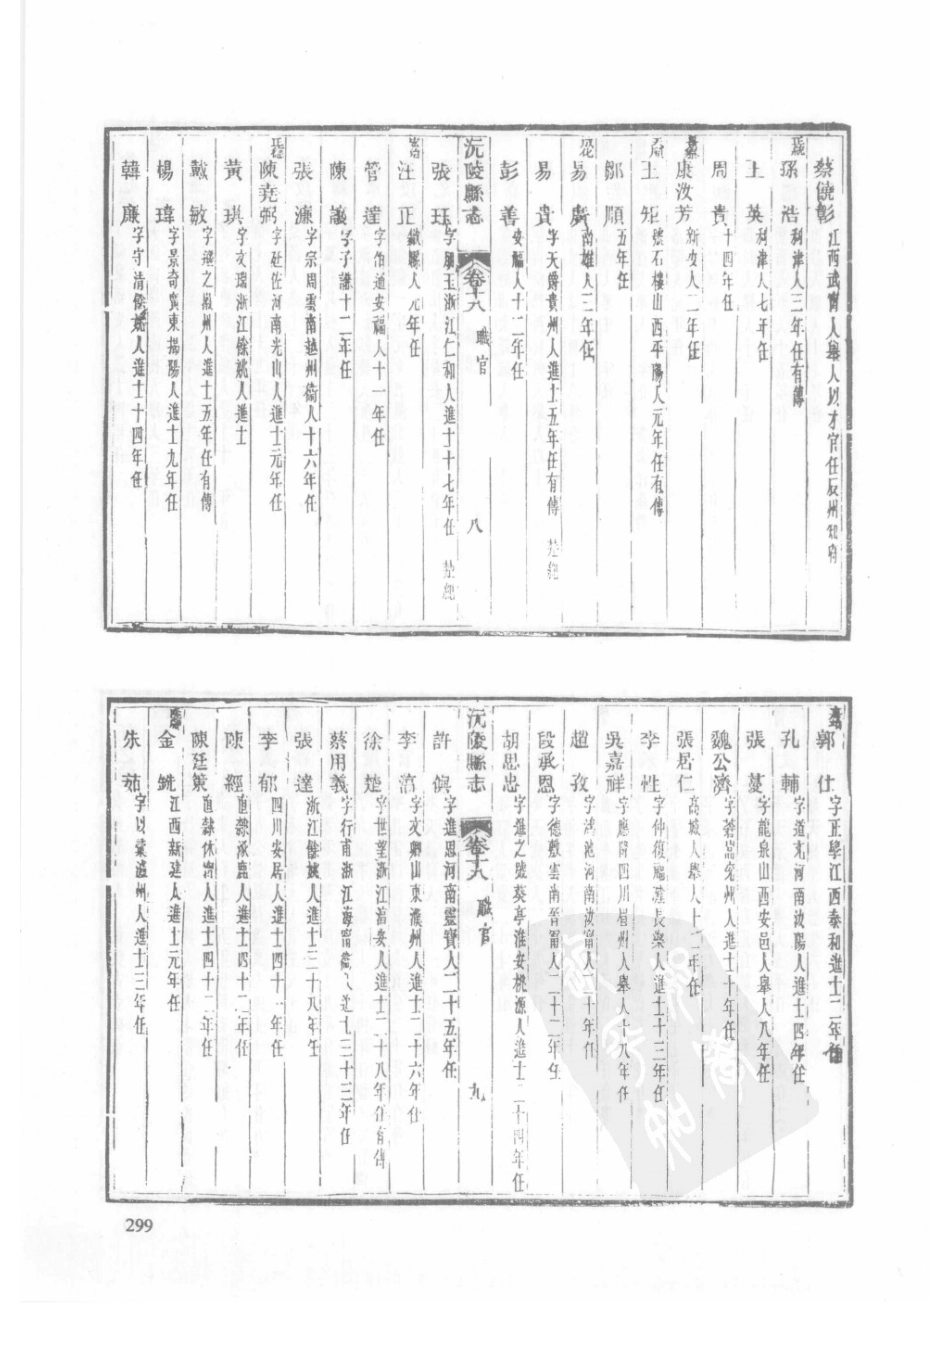 蔡饒彰 江西武寧人舉人以才官任辰州知府
孫浩 利津人三年任有傳
王英 利津人七年任
周貴 十四年任
康汝芳 新安人二年任
王矩 號石樓山西平陽人元年任有傳
鄒順 五年任
易廣 南雄人三年任
易貴 字天爵貴州人進士五年任有傳 楚紀
彭善 安福人十二年任
沅陵縣志 卷十八 職官 八
張珏 字朋玉浙江仁和人進士十七年任 楚紀
汪正 人元年任
管達 字伯通安福人十一年任
陳讓 字子謙十二年任
張濂 字宗周雲南越州衛人十六年任
陳堯弼 字廷佐河南光山人進士元年任
黃琪 字文瑞浙江餘姚人進士
戴敏 州人進士五年任有傳
楊瑋 字景奇廣東揭陽人進士九年任
韓廉 字守清餘姚人進士十四年任
郭仕 字正學江西泰和進士二年任
孔輔 字道充河南汝陽人進士四年任
張蔓 字龍泉山西安邑人舉人八年任
魏公濟 兖州人進士十年任
張居仁 高城人舉人十二年任
李性 字仲復福建長樂人進士十三年任
吳嘉祥 字應 四川眉州人舉人十八年任
趙孜 字鴻池河南汝甯人二十年任
段承恩 字德敷雲南晉甯人二十二年任
胡思忠 字進之號葵亭淮安桃源人進士二十四年任
沅陵縣志 卷十八 職官 九
許 字進思河南靈寶人二十五年任
李 字文卿山東濮州人進士二十六年任
徐楚 字世望浙江淳安人進士二十八年任有傳
蔡用義 字行甫浙江海甯衛人進士三十三年任
張達 浙江餘姚人進士三十八年任
李郁 四川安居人進士四十一年任
陳經 直隸涿鹿人進士四十二年任
陳廷策 直隸休甯人進士四十二年任
金銑 江西新建人進士元年任
朱茹 字以彙瀘州人進士三年任
299